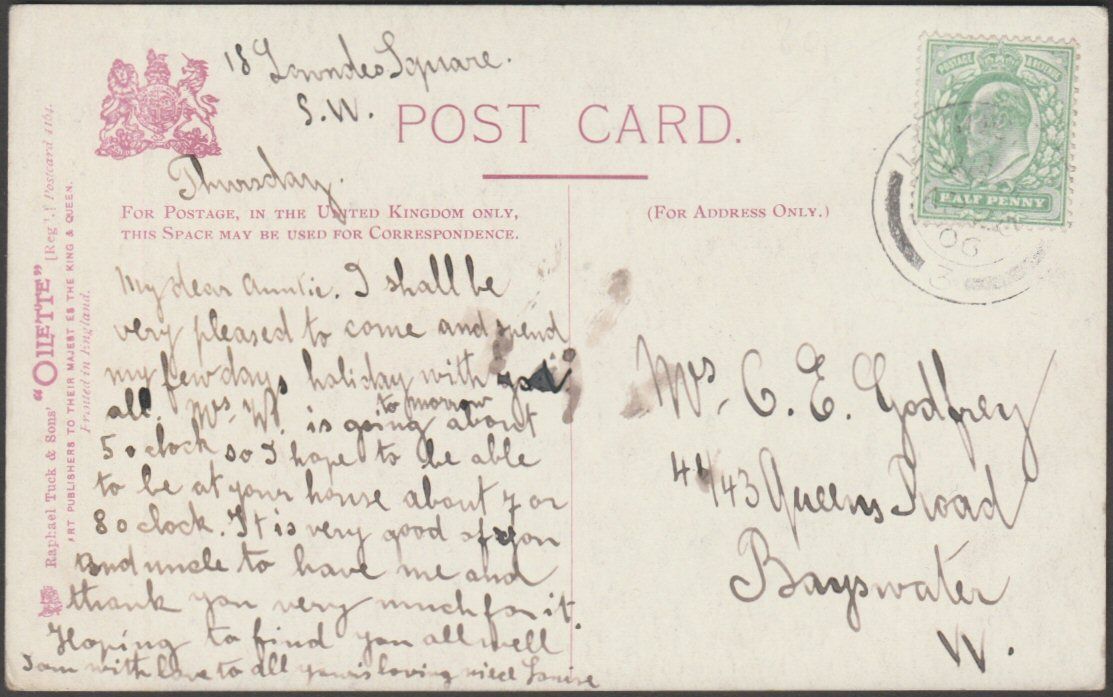 18 Lowndes Square.
S.W.
POST CARD.
Thursday.
FOR POSTAGE, IN THE UNITED KINGDOM ONLY,
THIS SPACE MAY BE USED FOR CORRESPONDENCE.
(FOR ADDRESS ONLY.)
My dear Auntie. I shall be
very pleased to come and spend
my few days holiday with you
all. Mrs. W. is going to morrow about
5 o clock so I hope to be able
to be at your house about 7 or
8 o clock. It is very good of you
and uncle to have me and
thank you very much for it.
Hoping to find you all well
I am with love to all your loving niece Louise
Mrs. C. E. Godfrey
41/43 Queens Road
Bayswater
W.
Raphael Tuck & Sons' "OILETTE" [Regd.] Postcard 4164.
ART PUBLISHERS TO THEIR MAJESTIES THE KING & QUEEN.
Printed in England.
POSTAGE & REVENUE
HALF PENNY
06